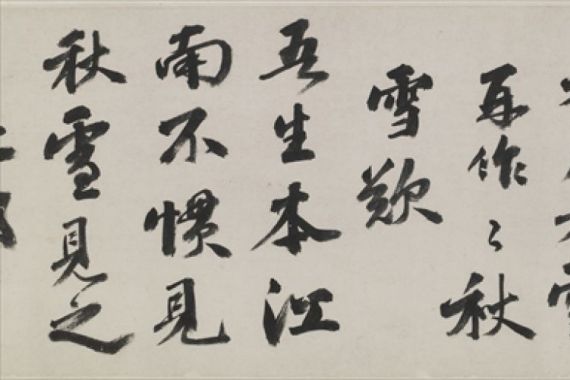 再作〻秋
雪歎
吾生本江
南不慣見
秋雪見之